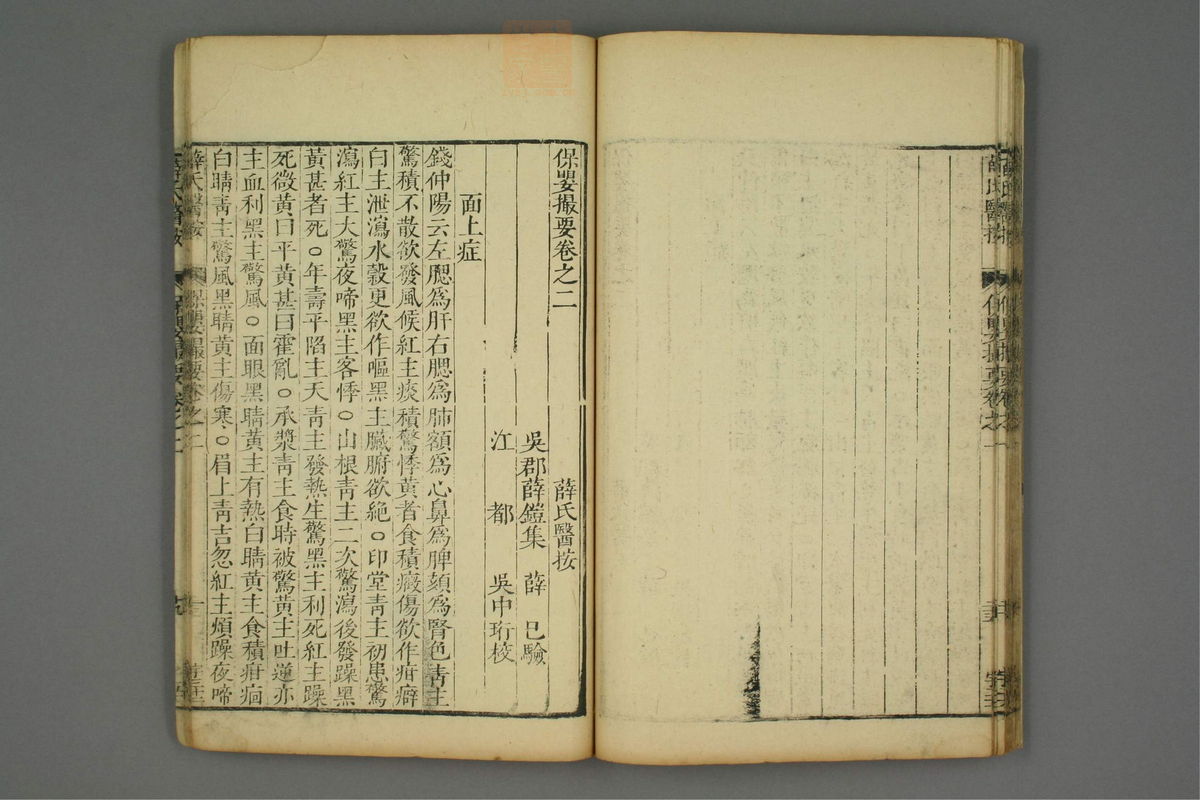 保嬰撮要卷之二 薛氏醫按
吳郡薛鎧集 薛 已驗
江 都 吳中珩校
面上症
錢仲陽云左腮爲肝右腮爲肺額爲心鼻爲脾頦爲腎色靑主
驚積不散欲發風候紅主痰積驚悸黃者食積癥傷欲作疳癖
白主泄瀉水穀更欲作嘔黑主臟腑欲絶○印堂靑主初患驚
瀉紅主大驚夜啼黑主客悸○山根靑主二次驚瀉後發躁黑
黃甚者死○年壽平陷主夭靑主發熱生驚黑主利死紅主躁
死微黃曰平黃甚曰霍亂○承漿靑主食時被驚黃主吐逆亦
主血利黑主驚風○面眼黑睛黃主有熱白睛黃主食積疳痼
白睛靑主驚風黑睛黃主傷寒○眉上靑吉忽紅主煩躁夜啼
薛氏醫按 保嬰撮要卷之二